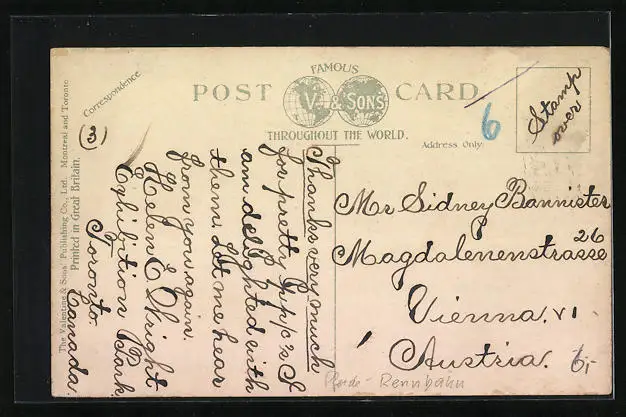 POST CARD
FAMOUS
V & SONS
THROUGHOUT THE WORLD.
Correspondence
Address Only.
The Valentine & Sons' Publishing Co., Ltd. Montreal and Toronto
Printed in Great Britain.
(3)
Stamp
over
6
Thanks very much
for pretty p.p/c's I
am delighted with
them. Let me hear
from you again.
Helen E. Wright
Exhibition Park
Toronto.
Canada
Mr Sidney Bannister
Magdalenenstrasse 26
Vienna. VI
Austria.
6,-
Pferde - Rennbahn